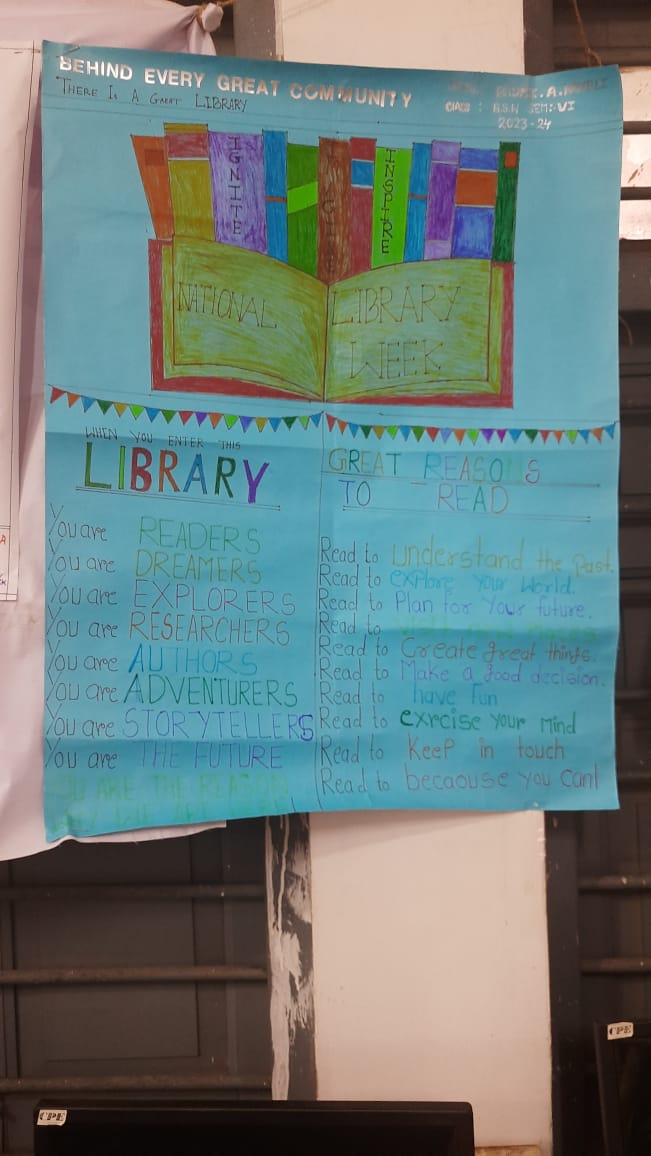 BEHIND EVERY GREAT COMMUNITY
THERE IS A GREAT LIBRARY
CLASS : B.S.W SEM:-VI
2023-24
IGNITE
INSPIRE
NATIONAL
LIBRARY
WEEK
WHEN YOU ENTER THIS
LIBRARY
You are READERS
You are DREAMERS
You are EXPLORERS
You are RESEARCHERS
You are AUTHORS
You are ADVENTURERS
You are STORYTELLERS
You are THE FUTURE
YOU ARE THE REASON
GREAT REASONS
TO READ
Read to understand the Past.
Read to explore your World.
Read to Plan for your future.
Read to
Read to Create great things.
Read to Make a good decision.
Read to have Fun
Read to exrcise your Mind
Read to Keep in touch
Read to becaouse you can!
CPE
CPE